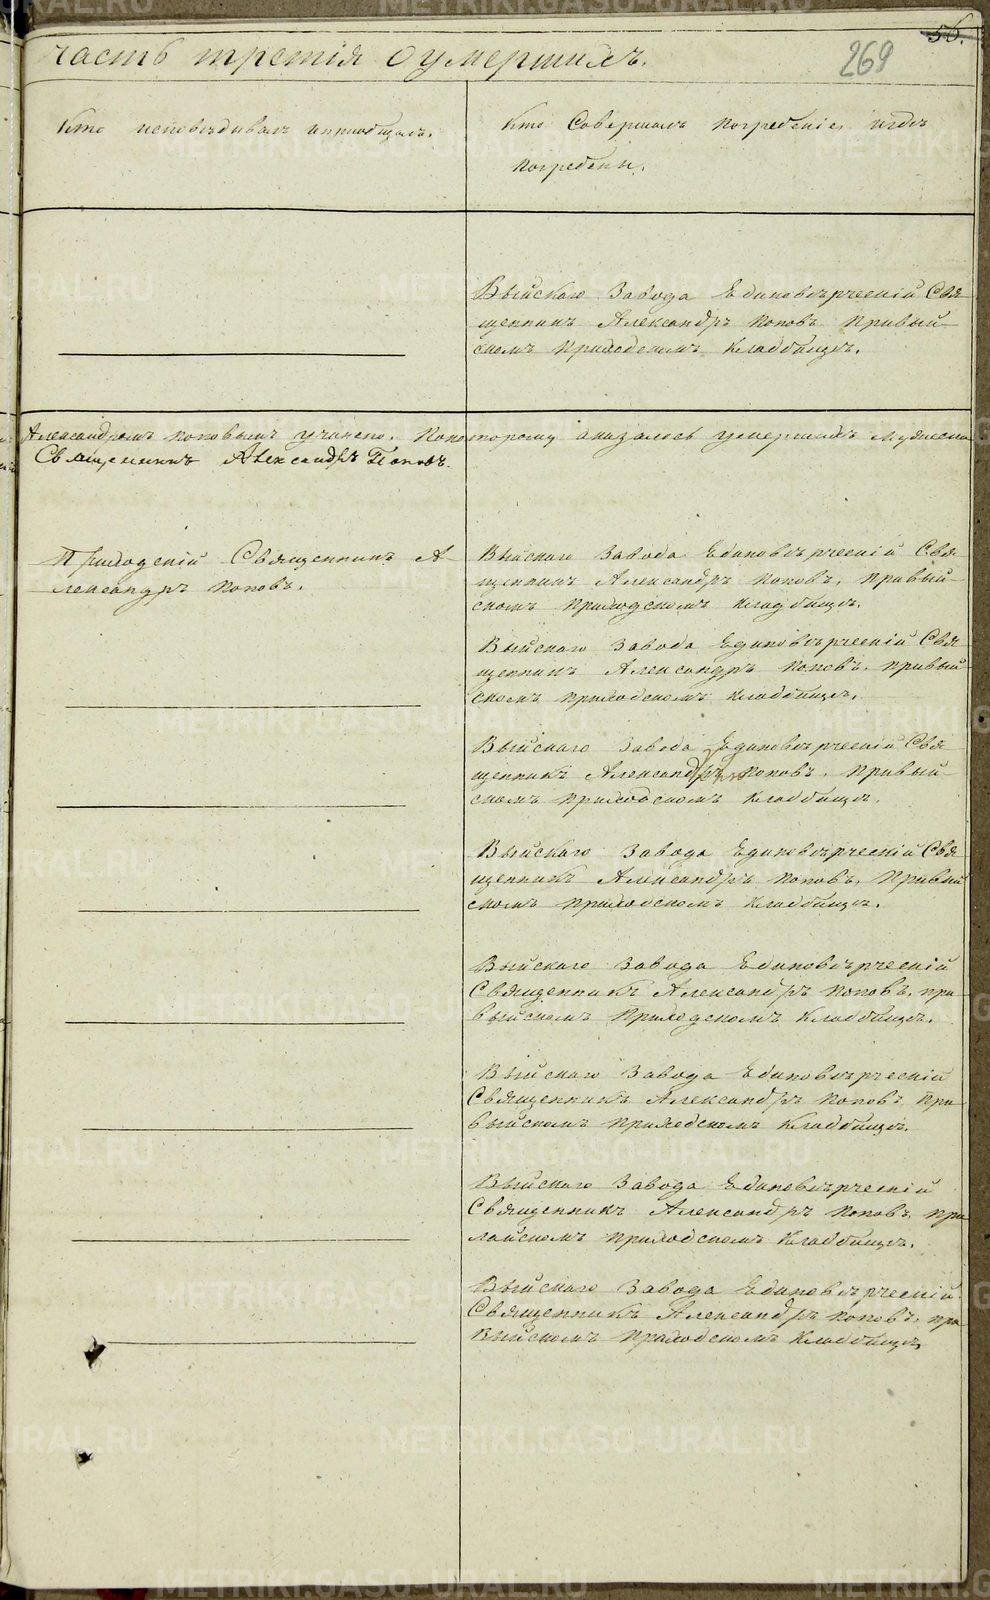 56.
269
часть третія о умершихъ.
Кто исповѣдывалъ и приобщалъ.
Кто Совершалъ погребеніе, и гдѣ
погребены.
Выйскаго Завода Единовѣрческій Свя
щенникъ Александръ Поповъ При Вый-
скомъ Приходскомъ Кладбищѣ.
Александромъ Поповымъ учинено. По которому оказалось умершихъ мужеска
Священникъ Александръ Поповъ.
Приходскій Священникъ А-
лександръ Поповъ.
Выйскаго Завода Единовѣрческій Свя
щенникъ Александръ Поповъ, при Вый-
скомъ Приходскомъ Кладбищѣ.
Выйскаго Завода Единовѣрческій Свя
щенникъ Александръ Поповъ. при Вый-
скомъ Приходскомъ Кладбищѣ.
Выйскаго Завода Единовѣрческій Свя
щенникъ Александръ Поповъ. При Вый-
скомъ Приходскомъ Кладбищѣ.
Выйскаго Завода Единовѣрческій Свя
щенникъ Александръ Поповъ, При Вый
скомъ Приходскомъ Кладбищѣ.
Выйскаго Завода Единовѣрческій
Священникъ Александръ Поповъ, при
Выйскомъ Приходскомъ Кладбищѣ.
Выйскаго Завода Единовѣрческій
Священникъ Александръ Поповъ, при
Выйскомъ Приходскомъ Кладбищѣ.
Выйскаго Завода Единовѣрческій
Священникъ Александръ Поповъ, при
лайскомъ Приходскомъ Кладбищѣ.
Выйскаго Завода Единовѣрческій
Священникъ Александръ Поповъ, при
Выйскомъ Приходскомъ Кладбищѣ
METRIKI.GASO-URAL.RU